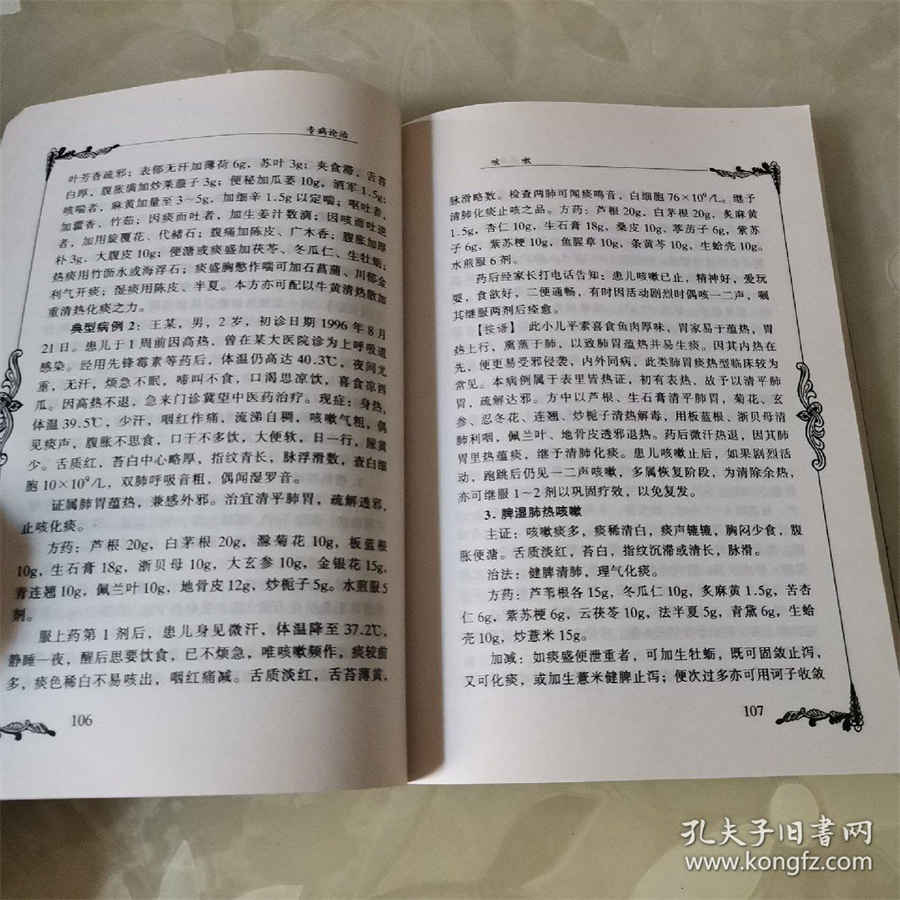 专病论治
叶芳香疏邪；表郁无汗加薄荷 6g，苏叶 3g；夹食滞，舌苔
白厚，腹胀满加炒莱菔子 3g；便秘加瓜蒌 10g，酒军 1.5g；
咳喘者，麻黄加量至 3～5g，加细辛 1.5g 以定喘；呕吐者，
加藿香，竹茹；因痰而吐者，加生姜汁数滴；因咳而吐
者，加用旋覆花、代赭石；腹痛加陈皮、广木香；腹胀加厚
朴 3g，大腹皮 10g；便溏或痰盛加茯苓、冬瓜仁、生牡蛎；
热痰用竹沥水或海浮石；痰盛胸憋作喘可加石菖蒲、川郁金
利气开痰；湿痰用陈皮、半夏。本方亦可配以牛黄清热散加
重清热化痰之力。
典型病例 2：王某，男，2 岁，初诊日期 1996 年 8 月
21 日。患儿于 1 周前因高热，曾在某大医院诊为上呼吸道
感染。经用先锋霉素等药后，体温仍高达 40.3℃，夜间尤
重，无汗，烦急不眠，啼叫不食，口渴思凉饮，喜食凉西
瓜。因高热不退，急来门诊冀望中医药治疗。现症：身热，
体温 39.5℃，少汗，咽红作痛，流涕自稠，咳嗽气粗，偶
见痰声，腹胀不思食，口干不多饮，大便软，日一行，尿黄
少。舌质红，苔白中心略厚，指纹青长，脉浮滑数，查白细
胞 10×10⁹/L，双肺呼吸音粗，偶闻湿罗音。
证属肺胃蕴热，兼感外邪。治宜清平肺胃，疏解透邪，
止咳化痰。
方药：芦根 20g，白茅根 20g，滁菊花 10g，板蓝根
10g，生石膏 18g，浙贝母 10g，大玄参 10g，金银花 15g，
青连翘 10g，佩兰叶 10g，地骨皮 12g，炒栀子 5g。水煎服 5
剂。
服上药第 1 剂后，患儿身见微汗，体温降至 37.2℃，
静睡一夜，醒后思要饮食，已不烦急，唯咳嗽频作，痰较前
多，痰色稀白不易咳出，咽红痛减。舌质淡红，舌苔薄黄，
106
咳 嗽
脉滑略数。检查两肺可闻痰鸣音，白细胞 76×10⁹/L。继予
清肺化痰止咳之品。方药：芦根 20g，白茅根 20g，炙麻黄
1.5g，杏仁 10g，生石膏 18g，桑皮 10g，葶苈子 6g，紫苏
子 6g，紫苏梗 10g，鱼腥草 10g，条黄芩 10g，生蛤壳 10g。
水煎服 6 剂。
药后经家长打电话告知：患儿咳嗽已止，精神好，爱玩
耍，食欲好，二便通畅，有时因活动剧烈时偶咳一二声，嘱
其继服两剂后痊愈。
【按语】 此小儿平素喜食鱼肉厚味，胃家易于蕴热，胃
热上行，熏蒸于肺，以致肺胃蕴热并易生痰。因其内热在
先，便更易受邪侵袭，内外同病，此类肺胃痰热型临床较为
常见。本病例属于表里皆热证，初有表热，故予以清平肺
胃，疏解达邪。方中以芦根、生石膏清平肺胃，菊花、玄
参、忍冬花、连翘、炒栀子清热解毒，用板蓝根、浙贝母清
肺利咽，佩兰叶、地骨皮透邪退热。药后微汗热退，因其肺
胃里热蕴痰，继予清肺化痰。患儿咳嗽止后，如果剧烈活
动，跑跳后仍见一二声咳嗽，多属恢复阶段，为清除余热，
亦可继服 1～2 剂以巩固疗效，以免复发。
3. 脾湿肺热咳嗽
主证：咳嗽痰多，痰稀清白，痰声辘辘，胸闷少食，腹
胀便溏。舌质淡红，苔白，指纹沉滞或清长，脉滑。
治法：健脾清肺，理气化痰。
方药：芦苇根各 15g，冬瓜仁 10g，炙麻黄 1.5g，苦杏
仁 6g，紫苏梗 6g，云茯苓 10g，法半夏 5g，青黛 6g，生蛤
壳 10g，炒薏米 15g。
加减：如痰盛便泄重者，可加生牡蛎，既可固敛止泻，
又可化痰，或加生薏米健脾止泻；便次过多亦可用诃子收敛
107
孔夫子旧书网
www.kongfz.com